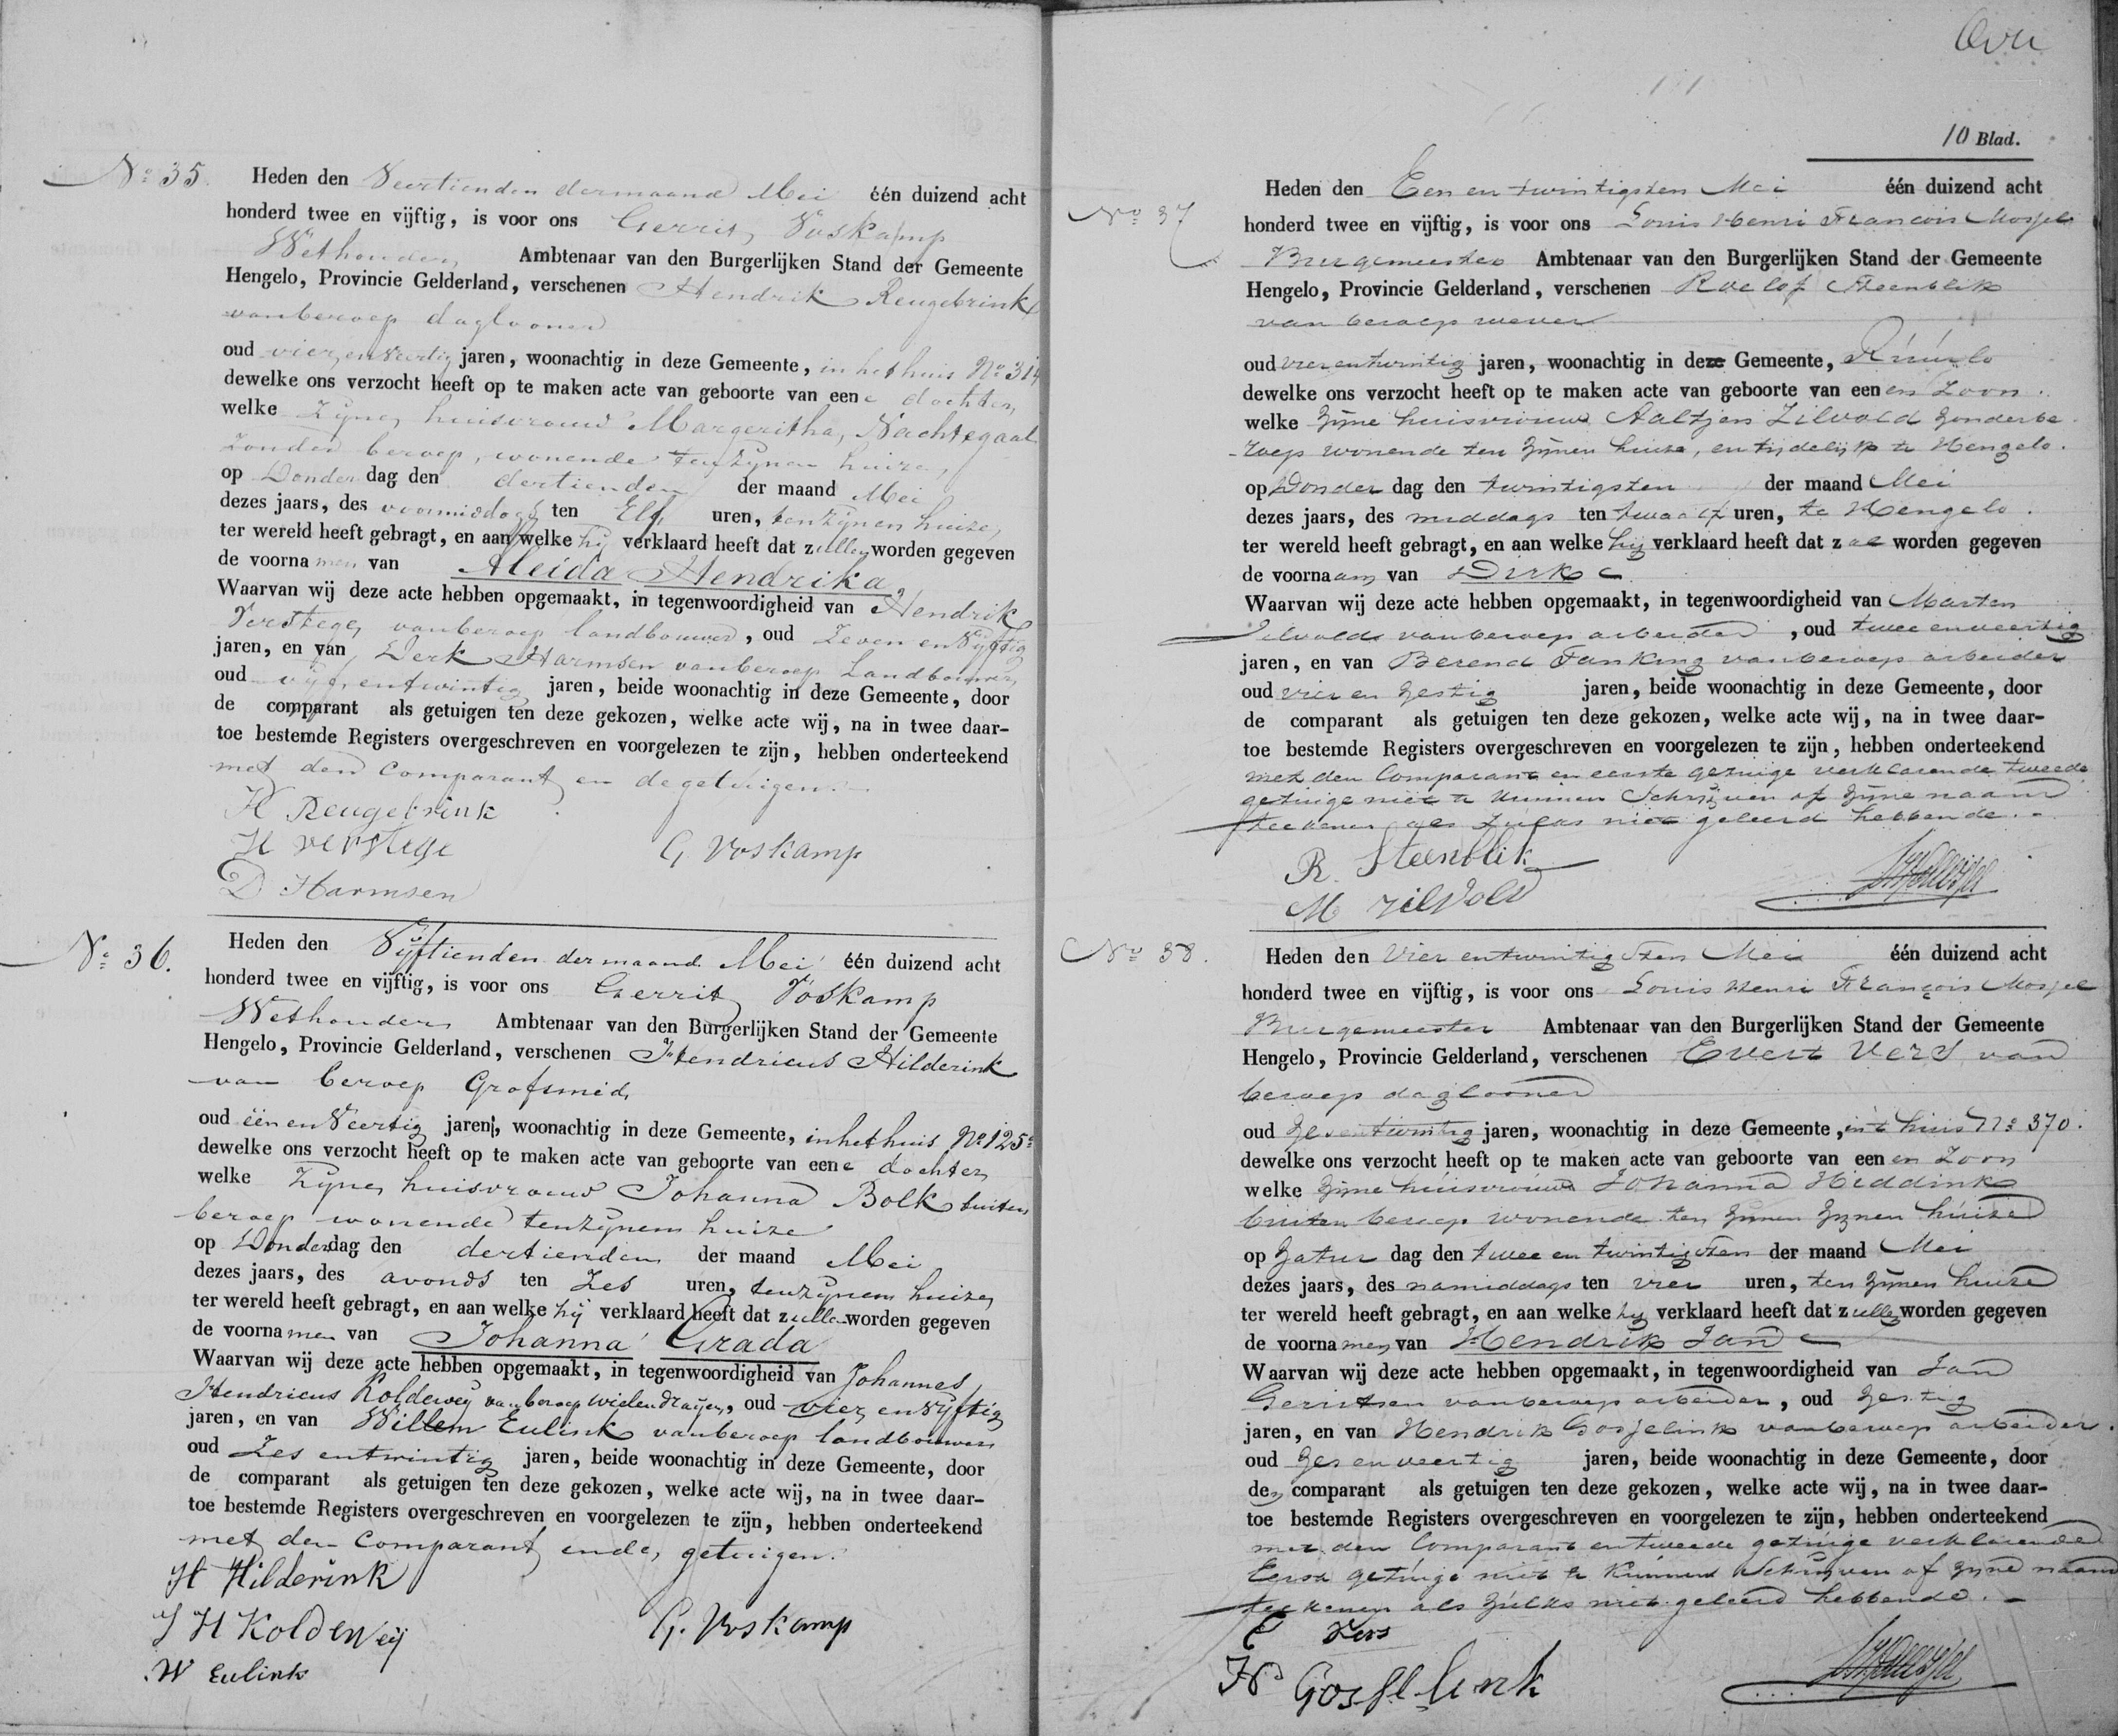 Nº 35.
Heden den Veertienden der maand Mei één duizend acht
honderd twee en vijftig, is voor ons Gerrit Voskamp
Wethouder Ambtenaar van den Burgerlijken Stand der Gemeente
Hengelo, Provincie Gelderland, verschenen Hendrik Reugebrink
van beroep daglooner
oud vier en veertig jaren, woonachtig in deze Gemeente, in het huis Nº 314
dewelke ons verzocht heeft op te maken acte van geboorte van eene dochter
welke zijne huisvrouw Margeritha Nachtegaal
zonder beroep, wonende ten zijnen huize,
op Donderdag den dertienden der maand Mei
dezes jaars, des voormiddags ten Elf uren, ten zijnen huize
ter wereld heeft gebragt, en aan welke hij verklaard heeft dat zullen worden gegeven
de voornamen van Aleida Hendrika
Waarvan wij deze acte hebben opgemaakt, in tegenwoordigheid van Hendrik
Verstege van beroep landbouwer, oud zeven en vijftig
jaren, en van Derk Harmsen van beroep Landbouwer
oud vijf en twintig jaren, beide woonachtig in deze Gemeente, door
de comparant als getuigen ten deze gekozen, welke acte wij, na in twee daar-
toe bestemde Registers overgeschreven en voorgelezen te zijn, hebben onderteekend
met den Comparant en de getuigen.
H Reugebrink
H verstege G. Voskamp
D Harmsen
Nº 36.
Heden den Vijftienden der maand Mei één duizend acht
honderd twee en vijftig, is voor ons Gerrit Voskamp
Wethouder Ambtenaar van den Burgerlijken Stand der Gemeente
Hengelo, Provincie Gelderland, verschenen Hendricus Hilderink
van beroep Grofsmid
oud één en Veertig jaren, woonachtig in deze Gemeente, in het huis Nº 125
dewelke ons verzocht heeft op te maken acte van geboorte van eene dochter
welke zijne huisvrouw Johanna Bolk buiten
beroep wonende ten zijnen huize
op Donderdag den dertienden der maand Mei
dezes jaars, des avonds ten Zes uren, ten zijnen huize
ter wereld heeft gebragt, en aan welke hij verklaard heeft dat zullen worden gegeven
de voornamen van Johanna Grada
Waarvan wij deze acte hebben opgemaakt, in tegenwoordigheid van Johannes
Hendricus Koldeweij van beroep wielendraijer, oud vier en vijftig
jaren, en van Willem Eulink van beroep landbouwer
oud Zes en twintig jaren, beide woonachtig in deze Gemeente, door
de comparant als getuigen ten deze gekozen, welke acte wij, na in twee daar-
toe bestemde Registers overgeschreven en voorgelezen te zijn, hebben onderteekend
met den Comparant en de getuigen.
H Hilderink
J H Koldeweij G. Voskamp
W Eulink
10 Blad.
Nº 37
Heden den Een en twintigsten Mei één duizend acht
honderd twee en vijftig, is voor ons Louis Henri Francois Mosjel
Burgemeester Ambtenaar van den Burgerlijken Stand der Gemeente
Hengelo, Provincie Gelderland, verschenen Roelof Steenblik
van beroep wever
oud vier en twintig jaren, woonachtig in deze Gemeente, Ruurlo
dewelke ons verzocht heeft op te maken acte van geboorte van eenen zoon
welke zijne huisvrouw Aaltjen Zilvold zonder be
roep wonende ten zijnen huize, en tijdelijk te Hengelo.
op Donderdag den twintigsten der maand Mei
dezes jaars, des middags ten twaalf uren, te Hengelo.
ter wereld heeft gebragt, en aan welke hij verklaard heeft dat zal worden gegeven
de voornaam van Dirk
Waarvan wij deze acte hebben opgemaakt, in tegenwoordigheid van Marten
Zilvold van beroep arbeider, oud twee en veertig
jaren, en van Berend Funking van beroep arbeider
oud vier en zestig jaren, beide woonachtig in deze Gemeente, door
de comparant als getuigen ten deze gekozen, welke acte wij, na in twee daar-
toe bestemde Registers overgeschreven en voorgelezen te zijn, hebben onderteekend
met den Comparant en eerste getuige verklarende tweede
getuige niet te kunnen Schrijven of zijne naam
teekenen als zulks niet geleerd hebbende.
R. Steenblik
M zilvold
Nº 38.
Heden den Vier en twintigsten Mei één duizend acht
honderd twee en vijftig, is voor ons Louis Henri François Mosjel
Burgemeester Ambtenaar van den Burgerlijken Stand der Gemeente
Hengelo, Provincie Gelderland, verschenen Evert Vers van
beroep daglooner
oud zes en twintig jaren, woonachtig in deze Gemeente, in 't huis Nº 370.
dewelke ons verzocht heeft op te maken acte van geboorte van eenen zoon
welke zijne huisvrouw Johanna Hiddink
buiten beroep wonende ten zijnen zijnen huize
op Zaturdag den twee en twintigsten der maand Mei
dezes jaars, des namiddags ten vier uren, ten zijnen huize
ter wereld heeft gebragt, en aan welke hij verklaard heeft dat zullen worden gegeven
de voornamen van Hendrik Jan
Waarvan wij deze acte hebben opgemaakt, in tegenwoordigheid van Jan
Gerritsen van beroep arbeider, oud zestig
jaren, en van Hendrik Gosselink van beroep arbeider.
oud zes en veertig jaren, beide woonachtig in deze Gemeente, door
den comparant als getuigen ten deze gekozen, welke acte wij, na in twee daar-
toe bestemde Registers overgeschreven en voorgelezen te zijn, hebben onderteekend
met den Comparant en tweede getuige verklarende
Eerste getuige niet te kunnen Schrijven of zijne naam
teekenen als zulks niet geleerd hebbende.
E Vers
H Gosselink